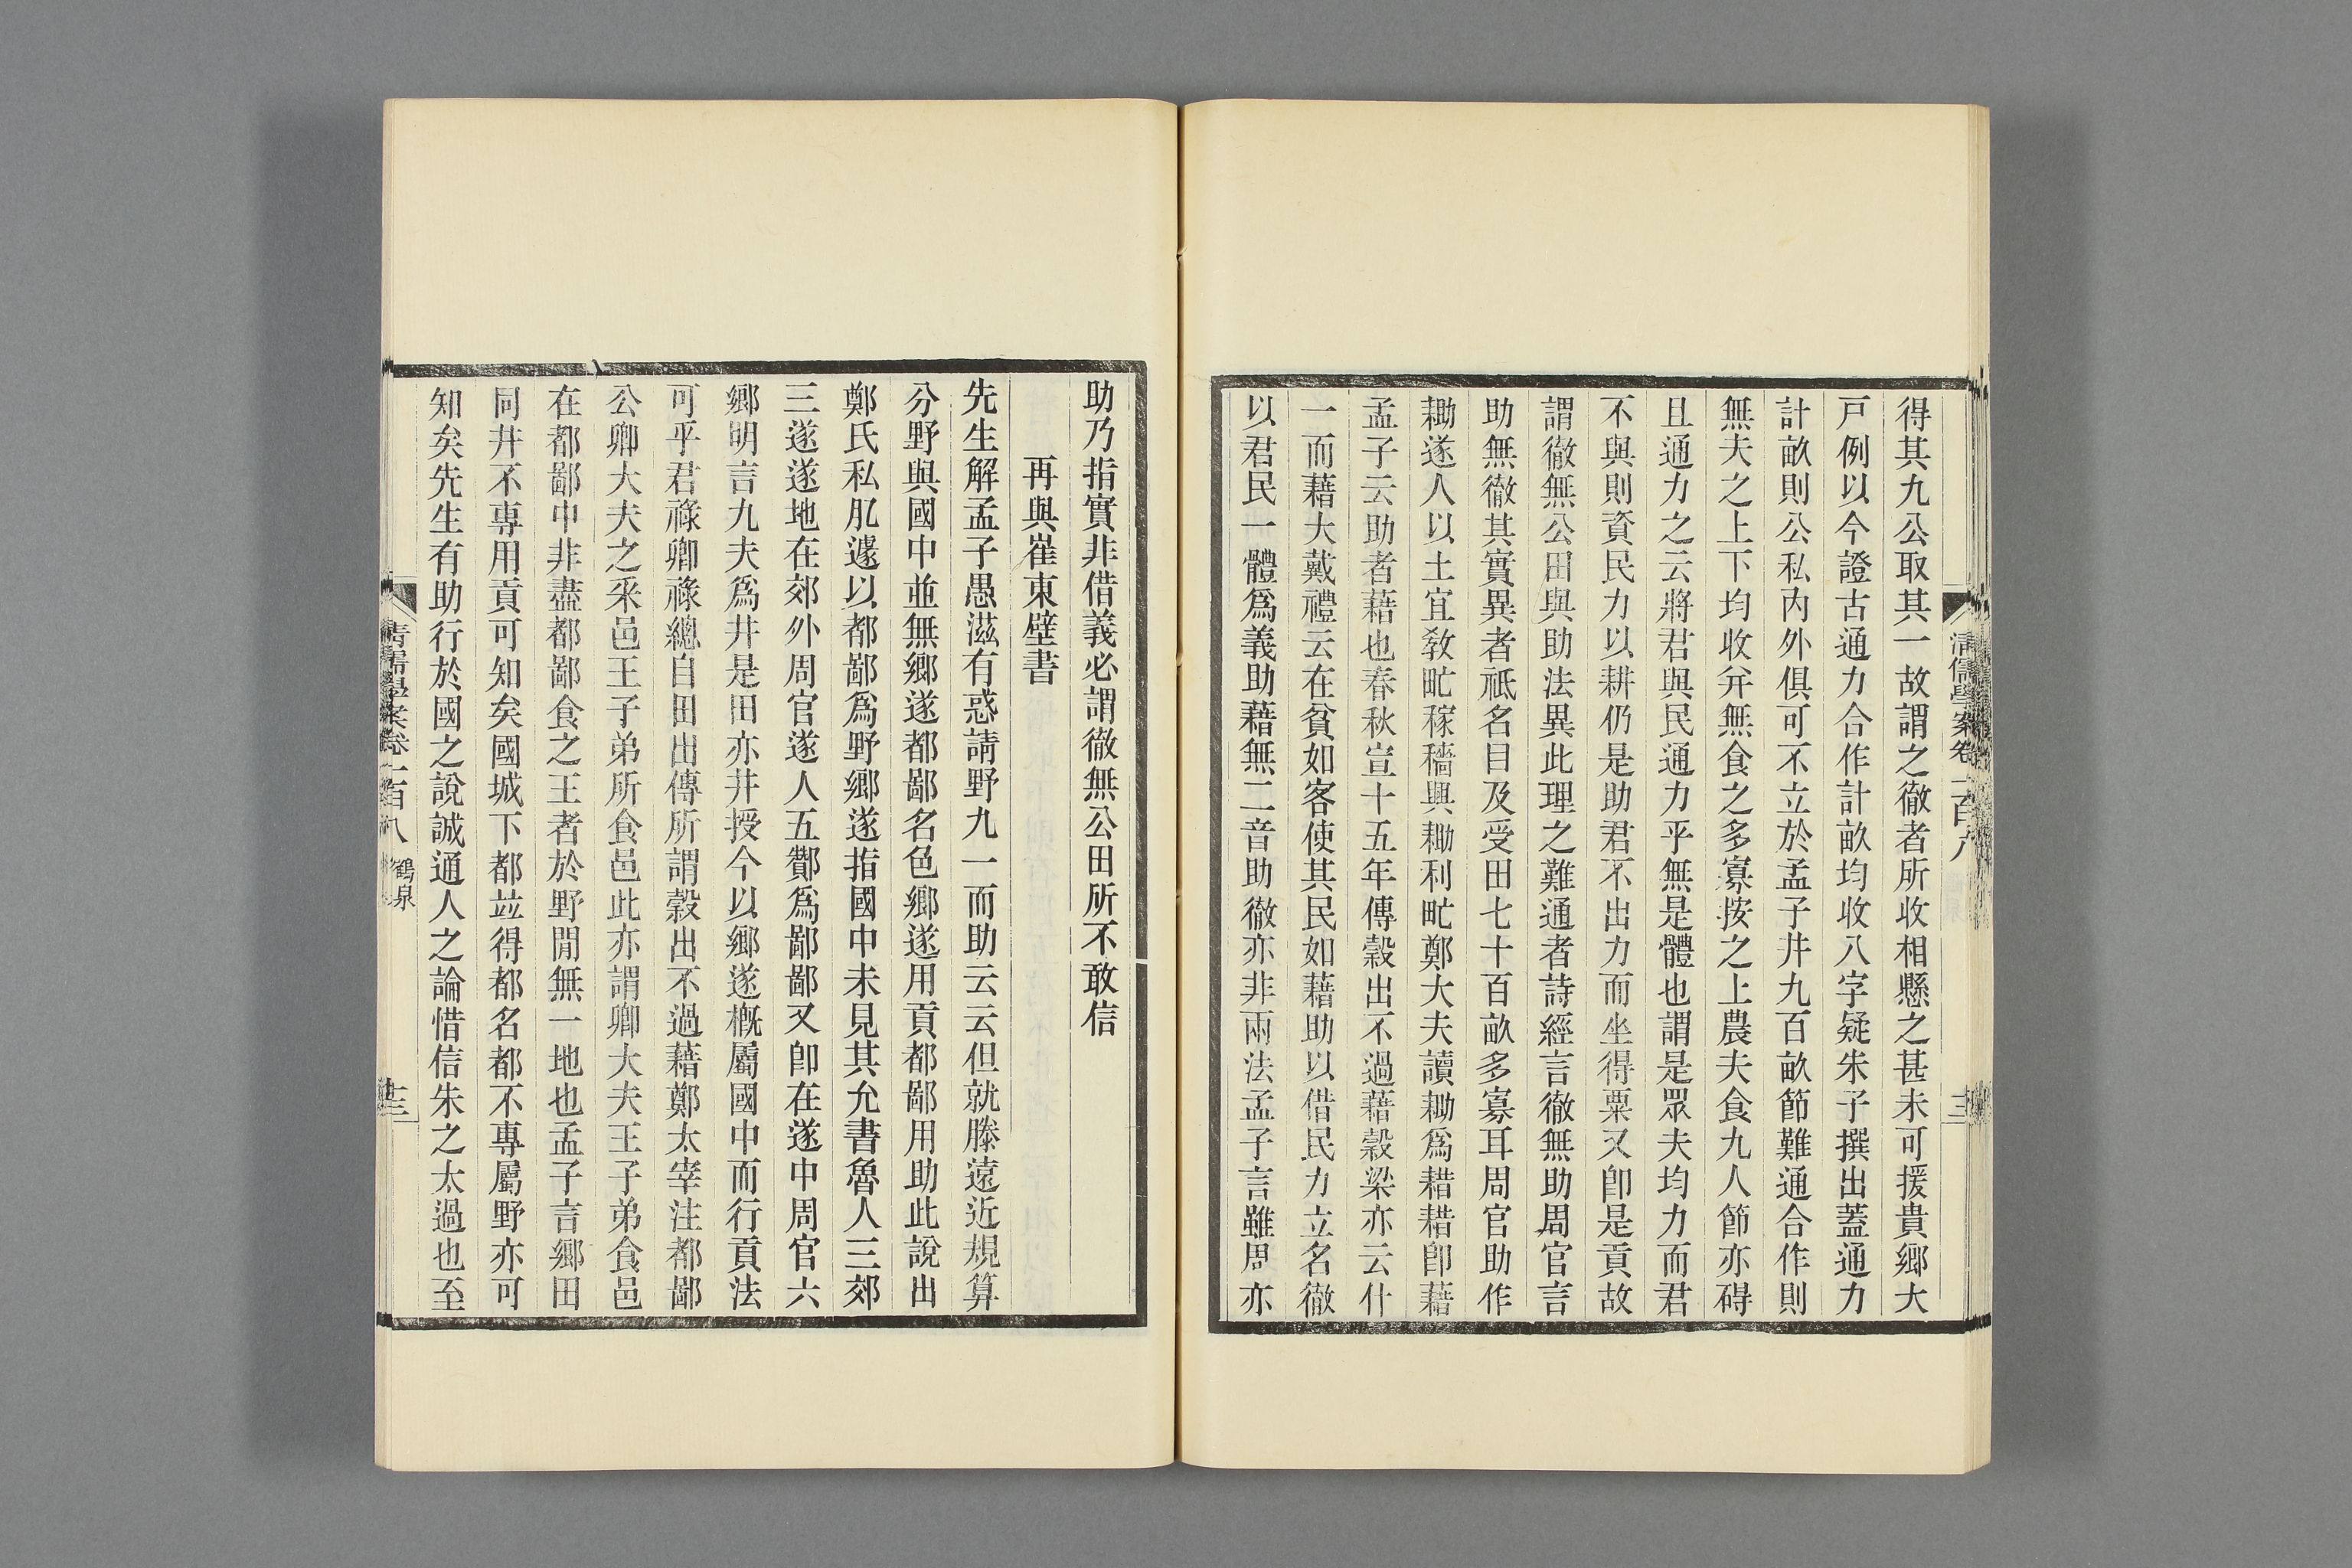 得其九公取其一故謂之徹者所收相懸之甚未可援貴鄉大
戸例以今證古通力合作計畝均收八字疑朱子撰出蓋通力
計畝則公私內外俱可不立於孟子井九百畝節難通合作則
無夫之上下均收幷無食之多寡按之上農夫食九人節亦碍
且通力之云將君與民通力乎無是體也謂是眾夫均力而君
不與則資民力以耕仍是助君不出力而坐得粟又卽是貢故
謂徹無公田與助法異此理之難通者詩經言徹無助周官言
助無徹其實異者祇名目及受田七十百畝多寡耳周官助作
耡遂人以土宜敎甿稼穡興耡利甿鄭大夫讀耡爲耤耤卽藉
孟子云助者藉也春秋宣十五年傳穀出不過藉穀梁亦云什
一而藉大戴禮云在貧如客使其民如藉助以借民力立名徹
以君民一體爲義助藉無二音助徹亦非兩法孟子言雖周亦
助乃指實非借義必謂徹無公田所不敢信
再與崔東壁書
先生解孟子愚滋有惑請野九一而助云云但就滕遠近規算
分野與國中並無鄉遂都鄙名色鄉遂用貢都鄙用助此說出
鄭氏私肊遽以都鄙爲野鄉遂指國中未見其允書魯人三郊
三遂遂地在郊外周官遂人五酇爲鄙鄙又卽在遂中周官六
鄉明言九夫爲井是田亦井授今以鄉遂槪屬國中而行貢法
可乎君祿卿祿總自田出傳所謂穀出不過藉鄭太宰注都鄙
公卿大夫之采邑王子弟所食邑此亦謂卿大夫王子弟食邑
在都鄙中非盡都鄙食之王者於野閒無一地也孟子言鄉田
同井不專用貢可知矣國城下都竝得都名都不專屬野亦可
知矣先生有助行於國之說誠通人之論惜信朱之太過也至
清儒學案卷一百八 鶴泉 十三